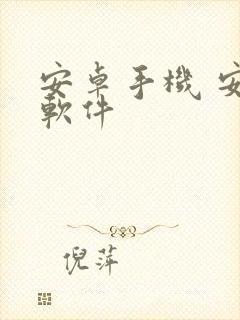 安卓手機 安
軟件
倪萍